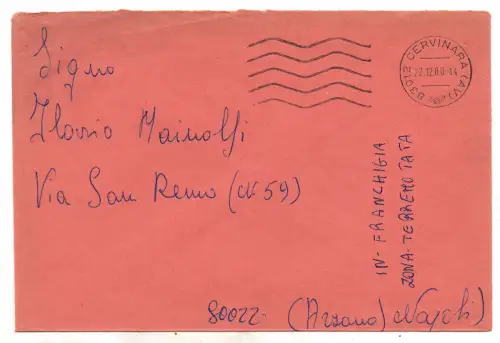 Signo
Ilario Mainolfi
Via San Remo (N 59)
80022 (Arzano) Napoli)
IN-FRANCHIGIA
ZONA-TERREMOTATA
83012 CERVINARA (AV)
27.12.80-14